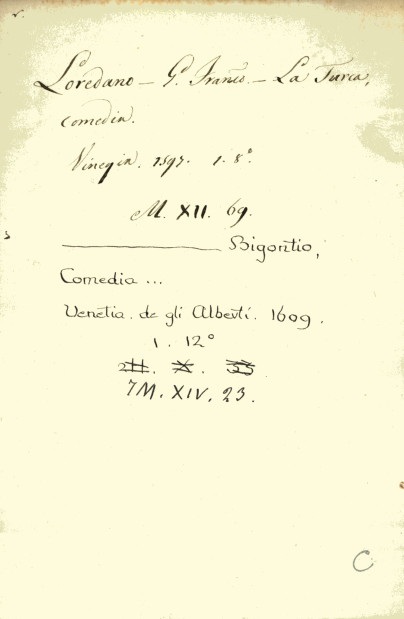 Loredano – Gº. Franco. – La Turca,
comedia.
Vinegia. 1597. 1. 8°.
M. XII. 69.
——— Bigontio,
Comedia ...
Venetia. de gli Alberti. 1609.
1. 12°
X. 33
7M. XIV. 23.
C